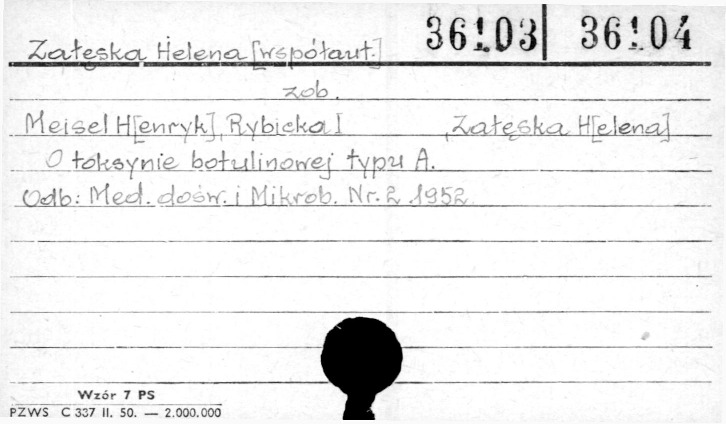 Załęska Helena [współaut.] 36103 36104
zob.
Meisel H[enryk], Rybicka I , Załęska H[elena]
O toksynie botulinowej typu A.
Odb: Med. dośw. i Mikrob. Nr. 2 1952
Wzór 7 PS
PZWS C 337 II. 50. — 2.000.000